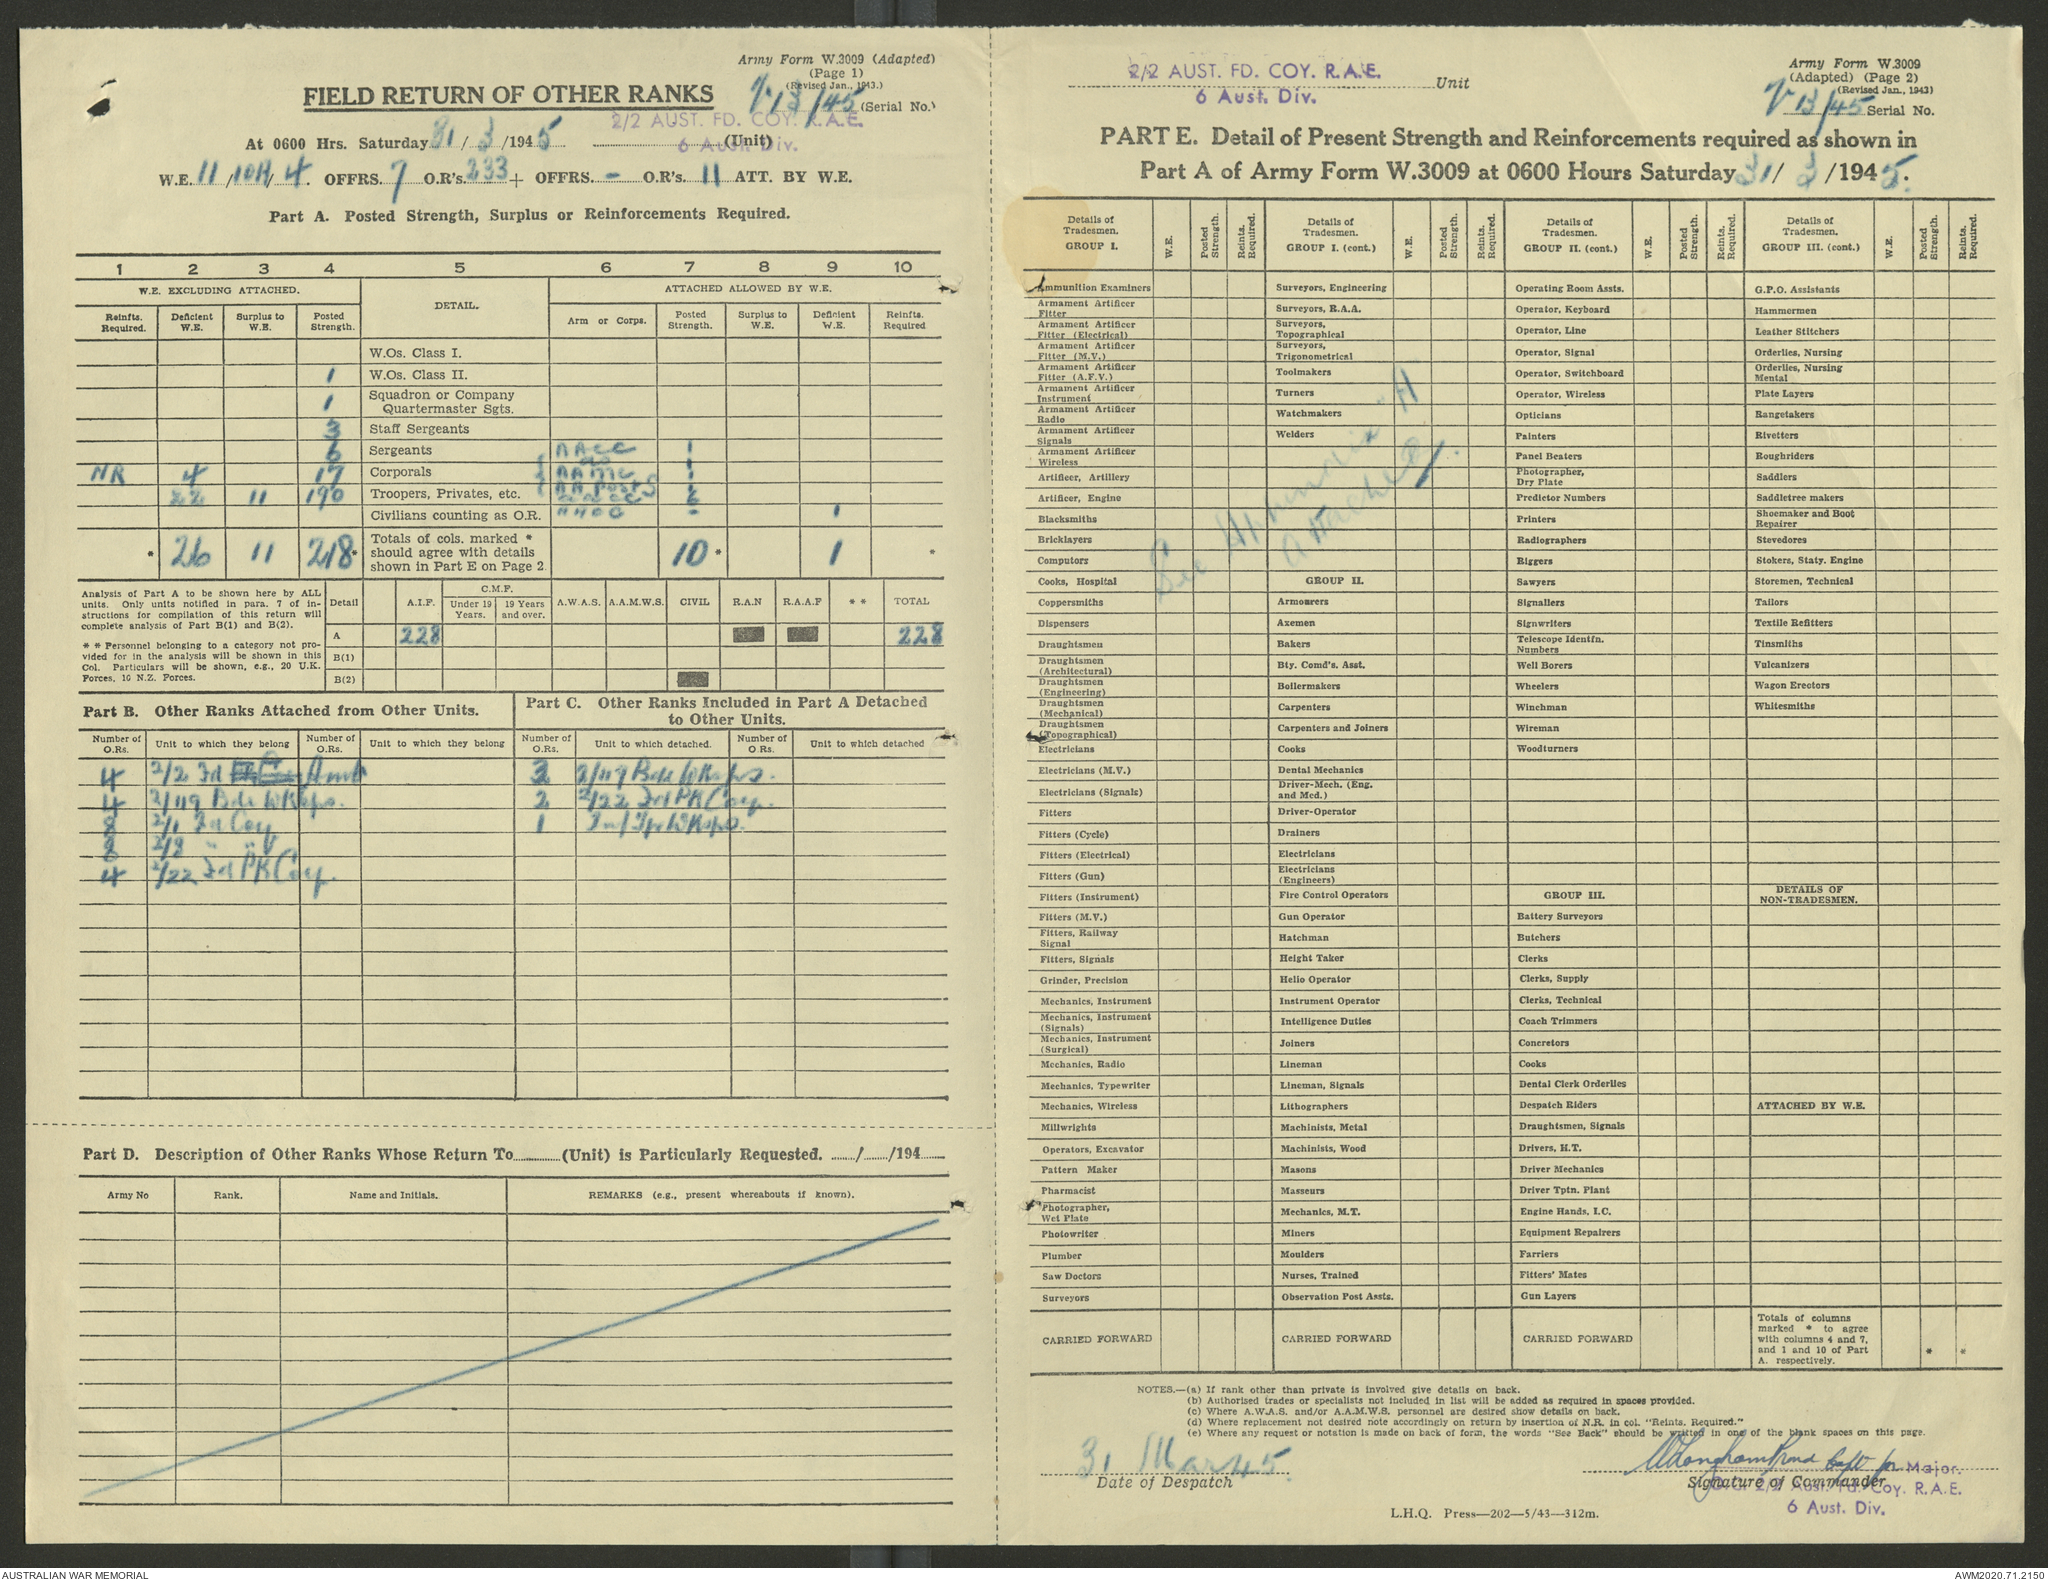 Army Form W.3009 (Adapted)
(Page 1)
(Revised Jan., 1943.)
FIELD RETURN OF OTHER RANKS
13/45 (Serial No.)
2/2 AUST. FD. COY. R.A.E.
At 0600 Hrs. Saturday 31/3/1945 (Unit)
6 Aust. Div.
W.E. 11/10H/4. OFFRS. 7 O.R's. 233 + OFFRS. - O.R's. 11 ATT. BY W.E.
Part A. Posted Strength, Surplus or Reinforcements Required.
1 2 3 4 5 6 7 8 9 10
W.E. EXCLUDING ATTACHED. DETAIL. ATTACHED ALLOWED BY W.E.
Reinfts. Required. Deficient W.E. Surplus to W.E. Posted Strength. Arm or Corps. Posted Strength. Surplus to W.E. Deficient W.E. Reinfts. Required
W.Os. Class I.
1 W.Os. Class II.
1 Squadron or Company Quartermaster Sgts.
3 Staff Sergeants
6 Sergeants AACC 1
NR 4 17 Corporals AAMC 1
22 11 190 Troopers, Privates, etc. AA Posts
Civilians counting as O.R. - 1
* 26 11 218* Totals of cols. marked * should agree with details shown in Part E on Page 2 10* 1 *
Analysis of Part A to be shown here by ALL units. Only units notified in para. 7 of instructions for compilation of this return will complete analysis of Part B(1) and B(2).
* * Personnel belonging to a category not provided for in the analysis will be shown in this Col. Particulars will be shown, e.g., 20 U.K. Forces, 10 N.Z. Forces.
Detail A.I.F. C.M.F. Under 19 Years. 19 Years and over. A.W.A.S. A.A.M.W.S. CIVIL R.A.N R.A.A.F * * TOTAL
A 228 228
B(1)
B(2)
Part B. Other Ranks Attached from Other Units.
Part C. Other Ranks Included in Part A Detached to Other Units.
Number of O.Rs. Unit to which they belong Number of O.Rs. Unit to which they belong Number of O.Rs. Unit to which detached. Number of O.Rs. Unit to which detached
4 2/2 Fd Amb 3 2/119 Bde WKsps.
4 2/119 Bde WKsps. 2 2/22 Fd PK Coy.
8 2/1 Fd Coy 1
8 2/8 " "
4 2/22 Fd PK Coy.
Part D. Description of Other Ranks Whose Return To (Unit) is Particularly Requested. / /194
Army No Rank. Name and Initials. REMARKS (e.g., present whereabouts if known).
2/2 AUST. FD. COY. R.A.E. Unit
6 Aust. Div.
Army Form W.3009
(Adapted) (Page 2)
(Revised Jan., 1943)
13/45 Serial No.
PART E. Detail of Present Strength and Reinforcements required as shown in
Part A of Army Form W.3009 at 0600 Hours Saturday 31/3/1945.
Details of Tradesmen. GROUP I. W.E. Posted Strength. Reints. Required.
Ammunition Examiners
Armament Artificer Fitter
Armament Artificer Fitter (Electrical)
Armament Artificer Fitter (M.V.)
Armament Artificer Fitter (A.F.V.)
Armament Artificer Instrument
Armament Artificer Radio
Armament Artificer Signals
Armament Artificer Wireless
Artificer, Artillery
Artificer, Engine
Blacksmiths
Bricklayers
Computors
Cooks, Hospital
Coppersmiths
Dispensers
Draughtsmen
Draughtsmen (Architectural)
Draughtsmen (Engineering)
Draughtsmen (Mechanical)
Draughtsmen (Topographical)
Electricians
Electricians (M.V.)
Electricians (Signals)
Fitters
Fitters (Cycle)
Fitters (Electrical)
Fitters (Gun)
Fitters (Instrument)
Fitters (M.V.)
Fitters, Railway Signal
Fitters, Signals
Grinder, Precision
Mechanics, Instrument
Mechanics, Instrument (Signals)
Mechanics, Instrument (Surgical)
Mechanics, Radio
Mechanics, Typewriter
Mechanics, Wireless
Millwrights
Operators, Excavator
Pattern Maker
Pharmacist
Photographer, Wet Plate
Photowriter
Plumber
Saw Doctors
Surveyors
CARRIED FORWARD
Details of Tradesmen. GROUP I. (cont.) W.E. Posted Strength. Reints. Required.
Surveyors, Engineering
Surveyors, R.A.A.
Surveyors, Topographical
Surveyors, Trigonometrical
Toolmakers
Turners
Watchmakers
Welders
See Appendix "H"
attached.
GROUP II.
Armourers
Axemen
Bakers
Bty. Comd's. Asst.
Boilermakers
Carpenters
Carpenters and Joiners
Cooks
Dental Mechanics
Driver-Mech. (Eng. and Med.)
Driver-Operator
Drainers
Electricians
Electricians (Engineers)
Fire Control Operators
Gun Operator
Hatchman
Height Taker
Helio Operator
Instrument Operator
Intelligence Duties
Joiners
Lineman
Lineman, Signals
Lithographers
Machinists, Metal
Machinists, Wood
Masons
Masseurs
Mechanics, M.T.
Miners
Moulders
Nurses, Trained
Observation Post Assts.
CARRIED FORWARD
Details of Tradesmen. GROUP II. (cont.) W.E. Posted Strength. Reints. Required.
Operating Room Assts.
Operator, Keyboard
Operator, Line
Operator, Signal
Operator, Switchboard
Operator, Wireless
Opticians
Painters
Panel Beaters
Photographer, Dry Plate
Predictor Numbers
Printers
Radiographers
Riggers
Sawyers
Signallers
Signwriters
Telescope Identfn. Numbers
Well Borers
Wheelers
Winchman
Wireman
Woodturners
GROUP III.
Battery Surveyors
Butchers
Clerks
Clerks, Supply
Clerks, Technical
Coach Trimmers
Concretors
Cooks
Dental Clerk Orderlies
Despatch Riders
Draughtsmen, Signals
Drivers, H.T.
Driver Mechanics
Driver Tptn. Plant
Engine Hands, I.C.
Equipment Repairers
Farriers
Fitters' Mates
Gun Layers
CARRIED FORWARD
Details of Tradesmen. GROUP III. (cont.) W.E. Posted Strength. Reints. Required.
G.P.O. Assistants
Hammermen
Leather Stitchers
Orderlies, Nursing
Orderlies, Nursing Mental
Plate Layers
Rangetakers
Rivetters
Roughriders
Saddlers
Saddletree makers
Shoemaker and Boot Repairer
Stevedores
Stokers, Staty. Engine
Storemen, Technical
Tailors
Textile Refitters
Tinsmiths
Vulcanizers
Wagon Erectors
Whitesmiths
DETAILS OF NON-TRADESMEN.
ATTACHED BY W.E.
Totals of columns marked * to agree with columns 4 and 7, and 1 and 10 of Part A. respectively. * *
NOTES.—(a) If rank other than private is involved give details on back.
(b) Authorised trades or specialists not included in list will be added as required in spaces provided.
(c) Where A.W.A.S. and/or A.A.M.W.S. personnel are desired show details on back.
(d) Where replacement not desired note accordingly on return by insertion of N.R. in col. "Reints. Required."
(e) Where any request or notation is made on back of form, the words "See Back" should be written in one of the blank spaces on this page.
31 Mar 45.
Date of Despatch
Capt for Major.
Signature of Commander
O.C. 2/2 Aust. Fd. Coy. R.A.E.
6 Aust. Div.
L.H.Q. Press—202—5/43—312m.
AUSTRALIAN WAR MEMORIAL
AWM2020.71.2150